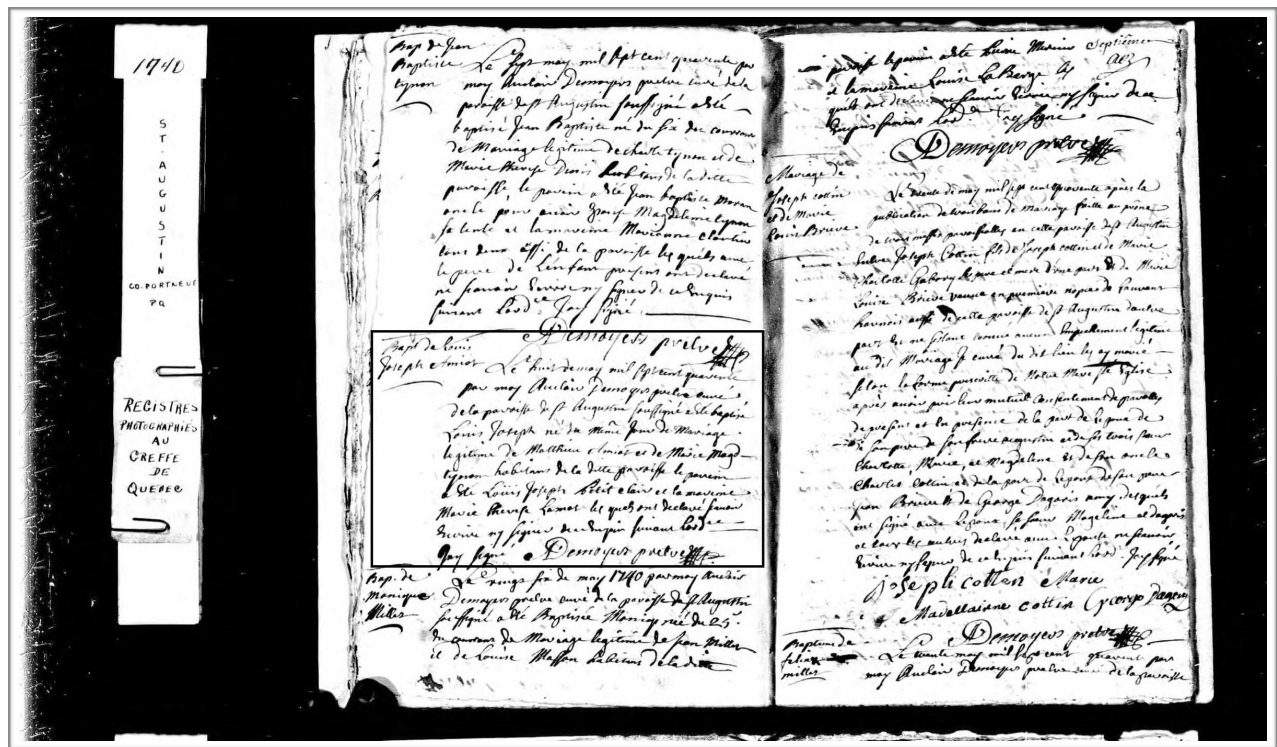 1740
ST. AUGUSTIN
CO. PORTNEUF
PQ
REGISTRES
PHOTOGRAPHIÉS
AU
GREFFE
DE
QUEBEC
Bap. de Jean
Baptiste
tynon
Le sept may mil sept cent quarente par
moy Auclair Demoyers prestre curé de la
paroisse de st Augustin soussigné a été
baptisé Jean Baptiste né du six du courant
de Mariage legitime de charle tynon et de
Marie therese Denis habitans de la ditte
paroisse le parein a été Jean baptiste
Magdeleine tynon
sa tente et la mareine Marianne
tous deux aussi de la paroisse les quels avec
le pere de L'enfan presens ont declaré
ne scavoir Ecrire ny signer de ce Enquis
suivant Lord.ce Jay signé
Demoyers prestre
Bapt. de Louis
Joseph Amiot
Le huit de may mil sept cent quarente
par moy Auclair Demoyers prestre curé
de la paroisse de st Augustin soussigné a été baptisé
Louis Joseph né du même Jour de Mariage
legitime de Matthieu Amiot et de Marie Magd
tynon habitans de la ditte paroisse le parein
a été Louis Joseph petit clair et la mareine
Marie therese Lamot les quels ont declaré scavoir
Ecrire ny signer de ce Enquis suivant Lord.ce
Jay signé Demoyers prestre
Bap. de
Monique
Milles
Le vingt six de may 1740 par moy Auclair
Demoyers prestre curé de la paroisse de st Augustin
soussigné a été Baptisée Monique née du 25.
du courant de Mariage legitime de Jean Milles
et de Louise Masson habitans de la ditte
paroisse le parein a été Septième
et la mareine Louise La Berge
quels ont declaré ne scavoir Ecrire ny signer de ce
Enquis suivant Lord.ce Jay signé
Demoyers prestre
Mariage de
Joseph cottin
et de Marie
Louise Briere
Le trente de may mil sept cent quarente après la
publication de trois bans de Mariage faitte au prône
de trois messes paroissialles en cette paroisse de st Augustin
Entre Joseph Cottin fils de Joseph cottin et de Marie
Charlotte Gabory ses pere et mere d'une part Et de Marie
Louise Briere veuve en premiere nopces de
harnois aussi de cette paroisse de st Augustin d'autre
part Et ne s'étant trouvé aucun Empeschement legitime
au dit Mariage Je curé du dit lieu les ay marié
selon la forme prescritte de Notre Mere ste Eglise
après avoir pris leur mutuel Consentement de parolles
de present et En presence de la part de l'epoux de
son pere de son frere augustin et de ses trois sœurs
Charlotte, Marie, et Magdeleine Et de son oncle
Charles Cottin et de la part de l'epouse de son pere
Jean Briere Et de George Dagoris amy, desquels
ont signé avec l'epoux, sa sœur Mageleine et dagoris
et tous les autres declaré avec l'epouse ne scavoir
Ecrire ny signer de ce Enquis suivant Lord. Jay signé
Joseph cotten Marie
Madellainne cottin George Dagory
Demoyers prestre
Baptême de
milles
Le trente may mil sept cent quarente par
moy Auclair Demoyers prestre curé de la paroisse